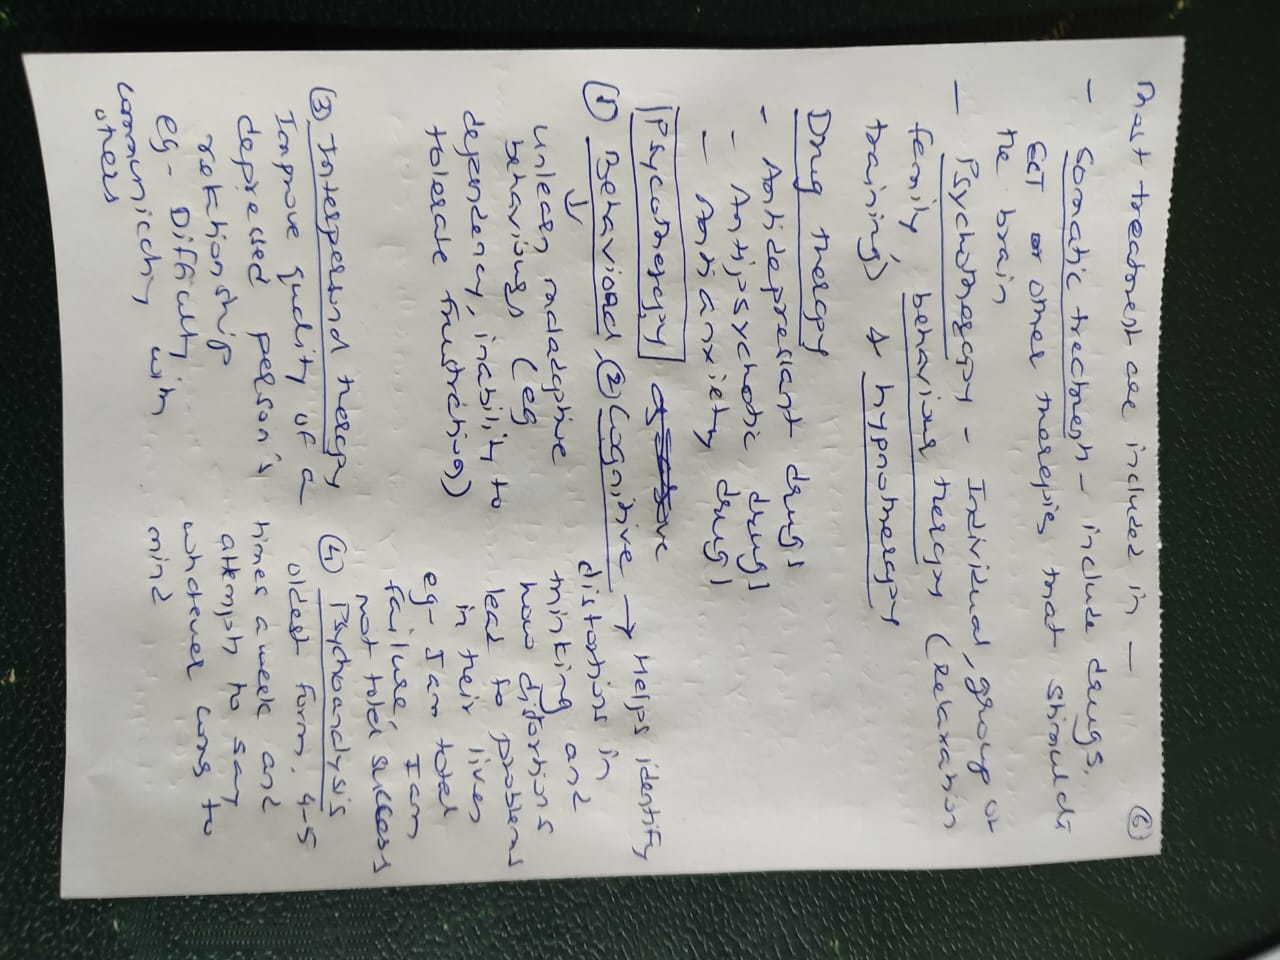 ⑥
Most treatment are included in —
- Somatic treatment - include drugs,
ECT or other therapies that stimulate
the brain
— Psychotherapy - Individual, group or
family, behaviour therapy (relaxation
training) & hypnotherapy
Drug therapy
- Antidepressant drugs
- Antipsychotic drugs
- Antianxiety drugs
Psycotherapy
① Behavioral
↓
unlearn maladaptive
behaviours (eg
dependency, inability to
tolerate frustrating)
② Cognitive → Helps identify
distortions in
thinking and
how distortions
lead to problems
in their lives
eg- I am total
failure, I am
not total success
③ Interpersonal therapy
Improve quality of a
depressed person's
relationship
eg- Difficulty with
communicating
others
④ Psychoanalysis
oldest form. 4-5
times a week and
attempts to say
whatever coms to
mind